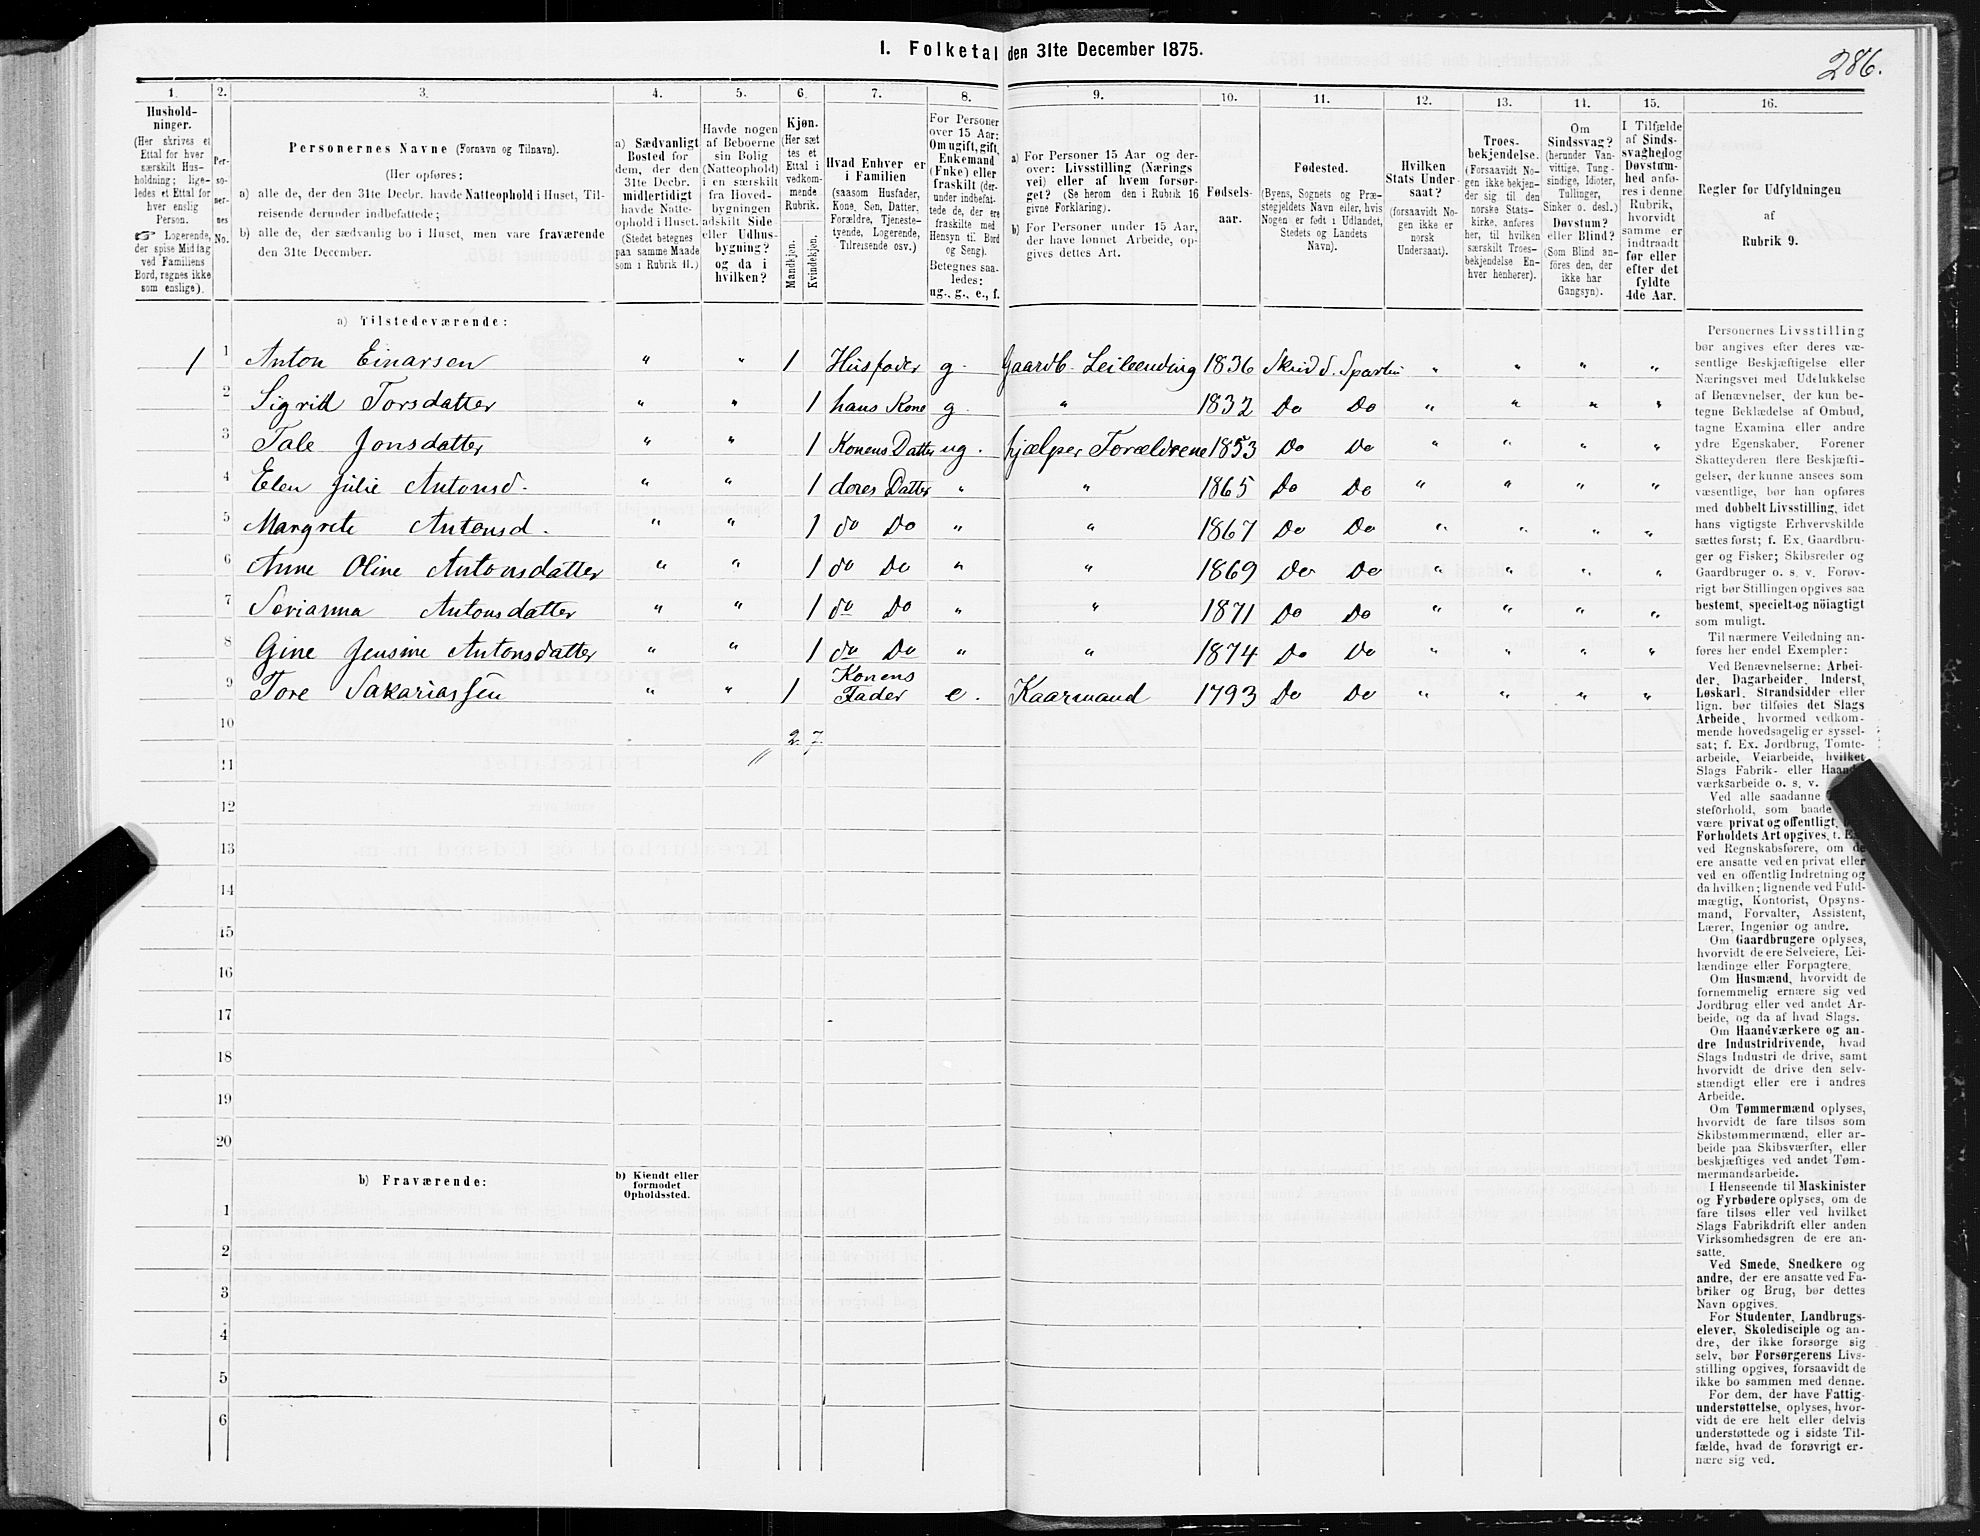 1. Folketal den 31te December 1875.
286.
1. 2. 3. 4. 5. 6. 7. 8. 9. 10. 11. 12. 13. 14. 15. 16.
Hushold-
ninger.
(Her skrives et
Ettal for hver
særskilt Hus-
holdning; lige-
ledes et Ettal for
hver enslig
Person.
☞ Logerende,
der spise Middag
ved Familiens
Bord, regnes ikke
som enslige).
Per-
so-
ner-
nes
No.
Personernes Navne (Fornavn og Tilnavn).
(Her opføres:
a) alle de, der den 31te Decbr. havde Natteophold i Huset, Til-
reisende derunder indbefattede;
b) alle de, der sædvanlig bo i Huset, men vare fraværende
den 31te December.
a) Sædvanligt
Bosted for
dem, der den
31te Decbr.
midlertidigt
havde Natte-
ophold i Huset.
(Stedet betegnes
paa samme Maade
som i Rubrik 11.)
Havde nogen
af Beboerne
sin Bolig
(Natteophold)
i en særskilt
fra Hoved-
bygningen
adskilt Side-
eller Udhus-
bygning?
og da i
hvilken?
Kjøn.
(Her sæt
tes et
Ettal i
vedkom-
mende
Rubrik.
Mandkjøn.
Kvindekjøn.
Hvad Enhver er
i Familien
(saasom Husfader,
Kone, Søn, Datter,
Forældre, Tjeneste-
tyende, Logerende,
Tilreisende osv.)
For Personer
over 15 Aar:
Om ugift, gift,
Enkemand
(Enke) eller
fraskilt (der-
under indbefat-
tede de, der ere
fraskilte med
Hensyn til Bord
og Seng).
Betegnes saa-
ledes:
ug., g., e., f.
a) For Personer 15 Aar og der-
over: Livsstilling (Nærings
vei) eller af hvem forsør-
get? (Se herom den i Rubrik 16
givne Forklaring).
b) For Personer under 15 Aar,
der have lønnet Arbeide, op-
gives dettes Art.
Fødsels-
aar.
Fødested.
(Byens, Sognets og Præ-
stegjeldets Navn eller, hvis
Nogen er født i Udlandet,
Stedets og Landets
Navn).
Hvilken
Stats Under-
saat?
(forsaavidt No-
gen ikke er
norsk
Undersaat).
Troes-
bekjendelse.
(Forsaavidt No-
gen ikke bekjen-
der sig til den
norske Stats-
kirke, anføres
her, til hvilken
særskilt Troes-
bekjendelse En-
hver henhører).
Om
Sindssvag?
(herunder Van-
vittige, Tung-
sindige, Idioter,
Tullinger,
Sinker o. desl.)
Døvstum?
eller Blind?
(Som Blind an-
føres den, der
ikke har
Gangsyn).
I Tilfælde
af Sinds-
svaghed og
Døvstum-
hed anfø-
res i denne
Rubrik,
hvorvidt
samme er
indtraadt
før eller
efter det
fyldte
4de Aar.
Regler for Udfyldningen
af
Rubrik 9.
a) Tilstedeværende:
1 1 Anton Einarsen " " 1 Husfader g. Gaardb. Leilending 1836 Skeid S. Sparbu " " " "
2 Sigrid Torsdatter " " 1 hans Kone g. " 1832 Do Do " " " "
3 Tale Jonsdatter " " 1 Konens Datter ug. hjælper Forældrene 1853 Do Do " " " "
4 Elen Julie Antonsd. " " 1 deres Datter " " 1865 Do Do " " " "
5 Margrete Antonsd. " " 1 do Do " " 1867 Do Do " " " "
6 Anne Oline Antonsdatter " " 1 do Do " " 1869 Do Do " " " "
7 Serianna Antonsdatter " " 1 do Do " " 1871 Do Do " " " "
8 Gine Jensine Antonsdatter " " 1 do Do " " 1874 Do Do " " " "
9 Tore Sakariassen " " 1 Konens Fader e. Kaarmand 1793 Do Do " " " "
10 2 7
11
12
13
14
15
16
17
18
19
20
b) Fraværende:
b) Kjendt eller
formodet
Opholdssted.
1
2
3
4
5
6
Personernes Livsstilling
bør angives efter deres væ-
sentlige Beskjæftigelse eller
Næringsvei med Udelukkelse
af Benævnelser, der kun be-
tegne Beklædelse af Ombud,
tagne Examina eller andre
ydre Egenskaber. Forener
Skatteyderen flere Beskjæfti-
gelser, der kunne ansees som
væsentlige, bør han opføres
med dobbelt Livsstilling, idet
hans vigtigste Erhvervskilde
sættes først; f. Ex. Gaardbru-
ger og Fisker; Skibsreder og
Gaardbruger o. s. v. Forøv-
rigt bør Stillingen opgives saa
bestemt, specielt og nöiagtigt
som muligt.
Til nærmere Veiledning an-
føres her endel Exempler:
Ved Benævnelserne: Arbei-
der, Dagarbeider, Inderst,
Løskarl, Strandsidder eller
lign. bør tilføies det Slags
Arbeide, hvormed vedkom-
mende hovedsagelig er syssel-
sat; f. Ex. Jordbrug, Tomte-
arbeide, Veiarbeide, hvilket
Slags Fabrik- eller Haand-
værksarbeide o. s. v.
Ved alle saadanne
steforhold, som baade
være privat og offentligt,
Forholdets Art opgives, t. Ex.
ved Regnskabsførere, om de
ere ansatte ved en privat eller
ved en offentlig Indretning og
da hvilken; lignende ved Fuld-
mægtig, Kontorist, Opsyns-
mand, Forvalter, Assistent,
Lærer, Ingeniør og andre.
Om Gaardbrugere oplyses,
hvorvidt de ere Selveiere, Lei-
lændinge eller Forpagtere.
Om Husmænd, hvorvidt de
fornemmelig ernære sig ved
Jordbrug eller ved andet Ar-
beide, og da af hvad Slags.
Om Haandværkere og an-
dre Industridrivende, hvad
Slags Industri de drive, samt
hvorvidt de drive den selv-
stændigt eller ere i andres
Arbeide.
Om Tømmermænd oplyses,
hvorvidt de fare tilsøs som
Skibstømmermænd, eller ar-
beide paa Skibsværfter, eller
beskjæftiges ved andet Tøm-
mermandsarbeide.
I Henseende til Maskinister
og Fyrbødere oplyses, om de
fare tilsøs eller ved hvilket
Slags Fabrikdrift eller anden
Virksomhedsgren de ere an-
satte.
Ved Smede, Snedkere og
andre, der ere ansatte ved Fa-
briker og Brug, bør dettes
Navn opgives.
For Studenter, Landbrugs-
elever, Skoledisciple og an-
dre, der ikke forsørge sig
selv, bør Forsørgerens Livs-
stilling opgives, forsaavidt de
ikke bo sammen med denne.
For dem, der have Fattig-
understøttelse, oplyses, hvor-
vidt de ere helt eller delvis
understøttede og i sidste Til-
fælde, hvad de forøvrigt er-
nære sig ved.